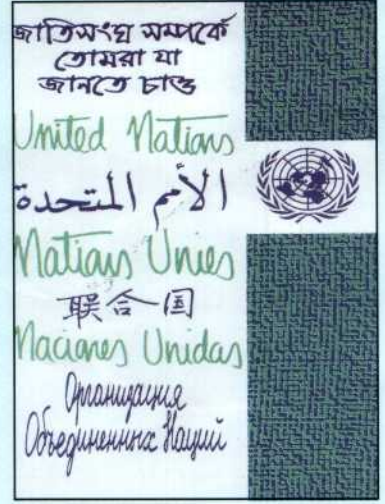 জাতিসংঘ সম্পর্কে
তোমরা যা
জানতে চাও
United Nations
الأمم المتحدة
Nations Unies
联合国
Naciones Unidas
Организация
Объединенных Наций